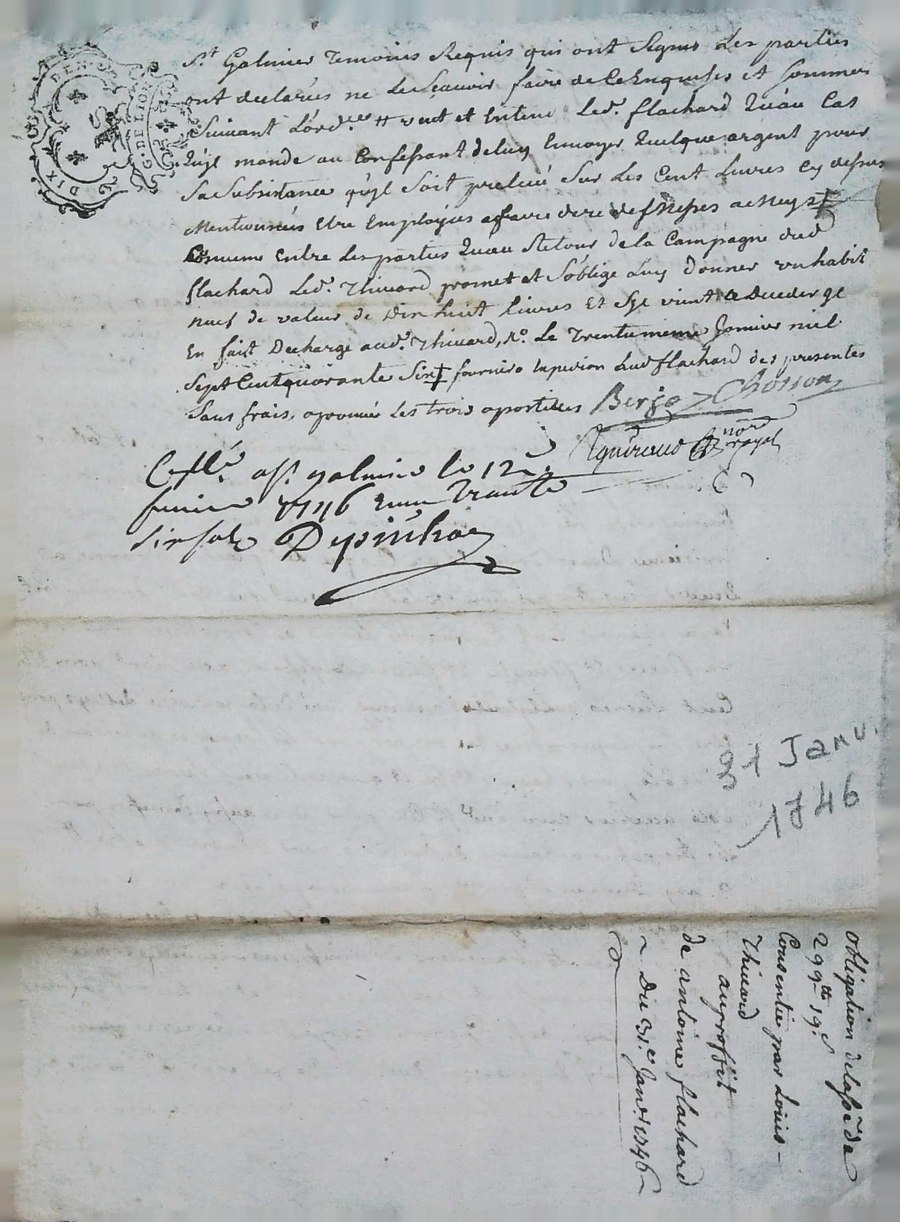 GDE LION
DIX DEN
St Galmier Temoins Requis qui ont Signes Les parties
ont declarées ne Le Scavoir faire de Ce Enquises et Sommees
Suivant L'ord.ce veut et Entend Led. flachard Qu'au Cas
Qu'yl mande au Confessant de Luy Envoyer Quelque argent pour
Sa Subsistance qu'yl Soit prelevé Sur Les Cent Livres Cy dessus
Mentionnées Etre Employées a faire dire des Messes
Convenu Entre Les parties Qu'au Retour de La Campagne dud
flachard Led. Thivard promet et S'oblige Luy donner un habit
neuf de valeur de Dix huit Livres Et S'yl vient a Deceder
En fait Decharge aud. Thivard, Le Trentunieme Janvier mil
Sept Cent quarante Six fournira Expedion Aud flachard des presentes
Sans frais, aprouvée Les trois apostilles Berjo Chosson
nore royal
Collé a St galmier le 12e
fevrier 1746 Reçu Trante
Six sols
31 Janv.
1746
obligation de la Some de
299tt 19s
Consentie par Louis
Thivard
au proffit
de antoine flachard
Du 31e Janv. 1746